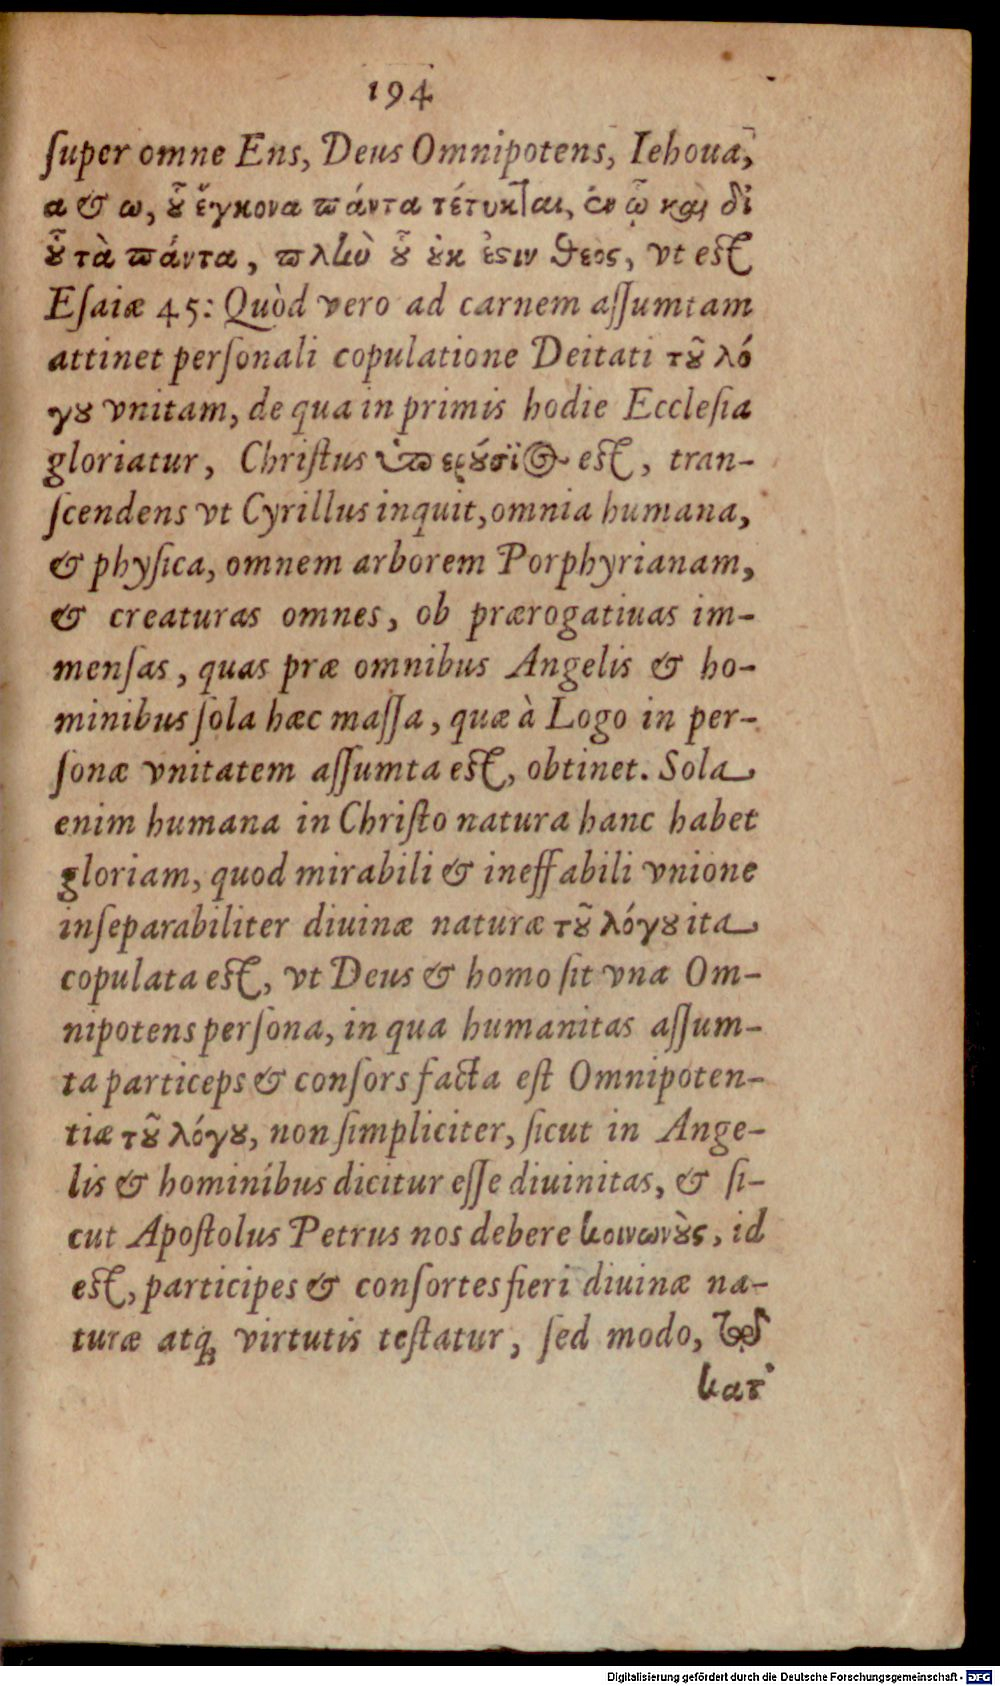 194
ſuper omne Ens, Deus Omnipotens, Iehoua,
α & ω, οὗ ἔγκονα πάντα τέτυκται, ἐν ᾧ καὶ δι
οὗ τὰ πάντα, πλὴν οὗ οὐκ ἐστιν θεος, vt eſt
Eſaiæ 45: Quòd vero ad carnem aſſumtam
attinet perſonali copulatione Deitati τοῦ λό
γου vnitam, de qua in primis hodie Eccleſia
gloriatur, Chriſtus ὑπερούσιος eſt, tran-
ſcendens vt Cyrillus inquit, omnia humana,
& phyſica, omnem arborem Porphyrianam,
& creaturas omnes, ob prærogatiuas im-
menſas, quas præ omnibus Angelis & ho-
minibus ſola hæc maſſa, quæ à Logo in per-
ſonæ vnitatem aſſumta eſt, obtinet. Sola
enim humana in Chriſto natura hanc habet
gloriam, quod mirabili & ineffabili vnione
inſeparabiliter diuinæ naturæ τοῦ λόγου ita
copulata eſt, vt Deus & homo ſit vna Om-
nipotens perſona, in qua humanitas aſſum-
ta particeps & conſors facta eſt Omnipoten-
tiæ τοῦ λόγου, non ſimpliciter, ſicut in Ange-
lis & hominibus dicitur eſſe diuinitas, & ſi-
cut Apoſtolus Petrus nos debere κοινωνοὺς, id
eſt, participes & conſortes fieri diuinæ na-
turæ atq; virtutis teſtatur, ſed modo,
κατ'
Digitalisierung gefördert durch die Deutsche Forschungsgemeinschaft - DFG